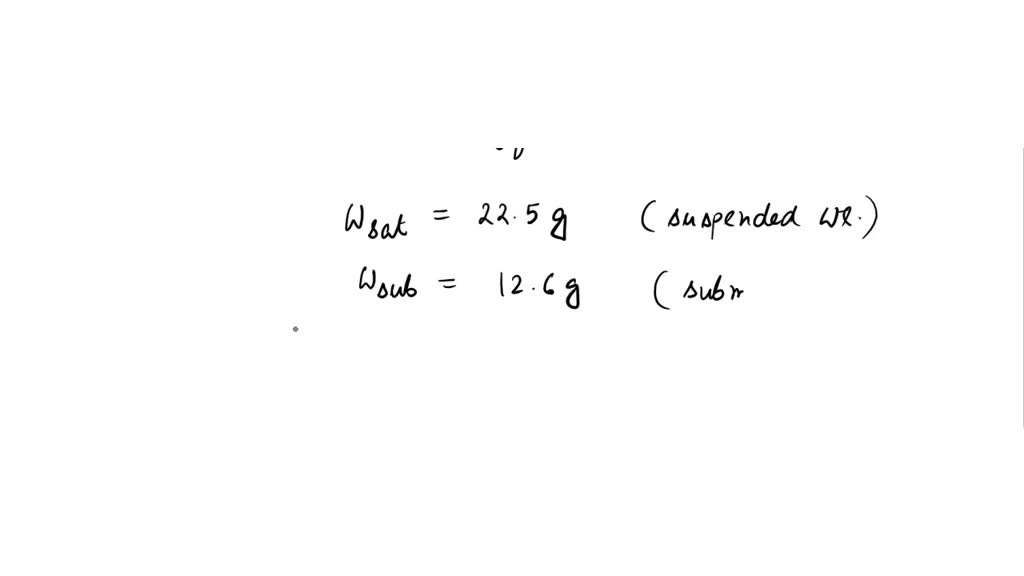 Wsat = 22.5 g (suspended wt.)
Wsub = 12.6 g (subm